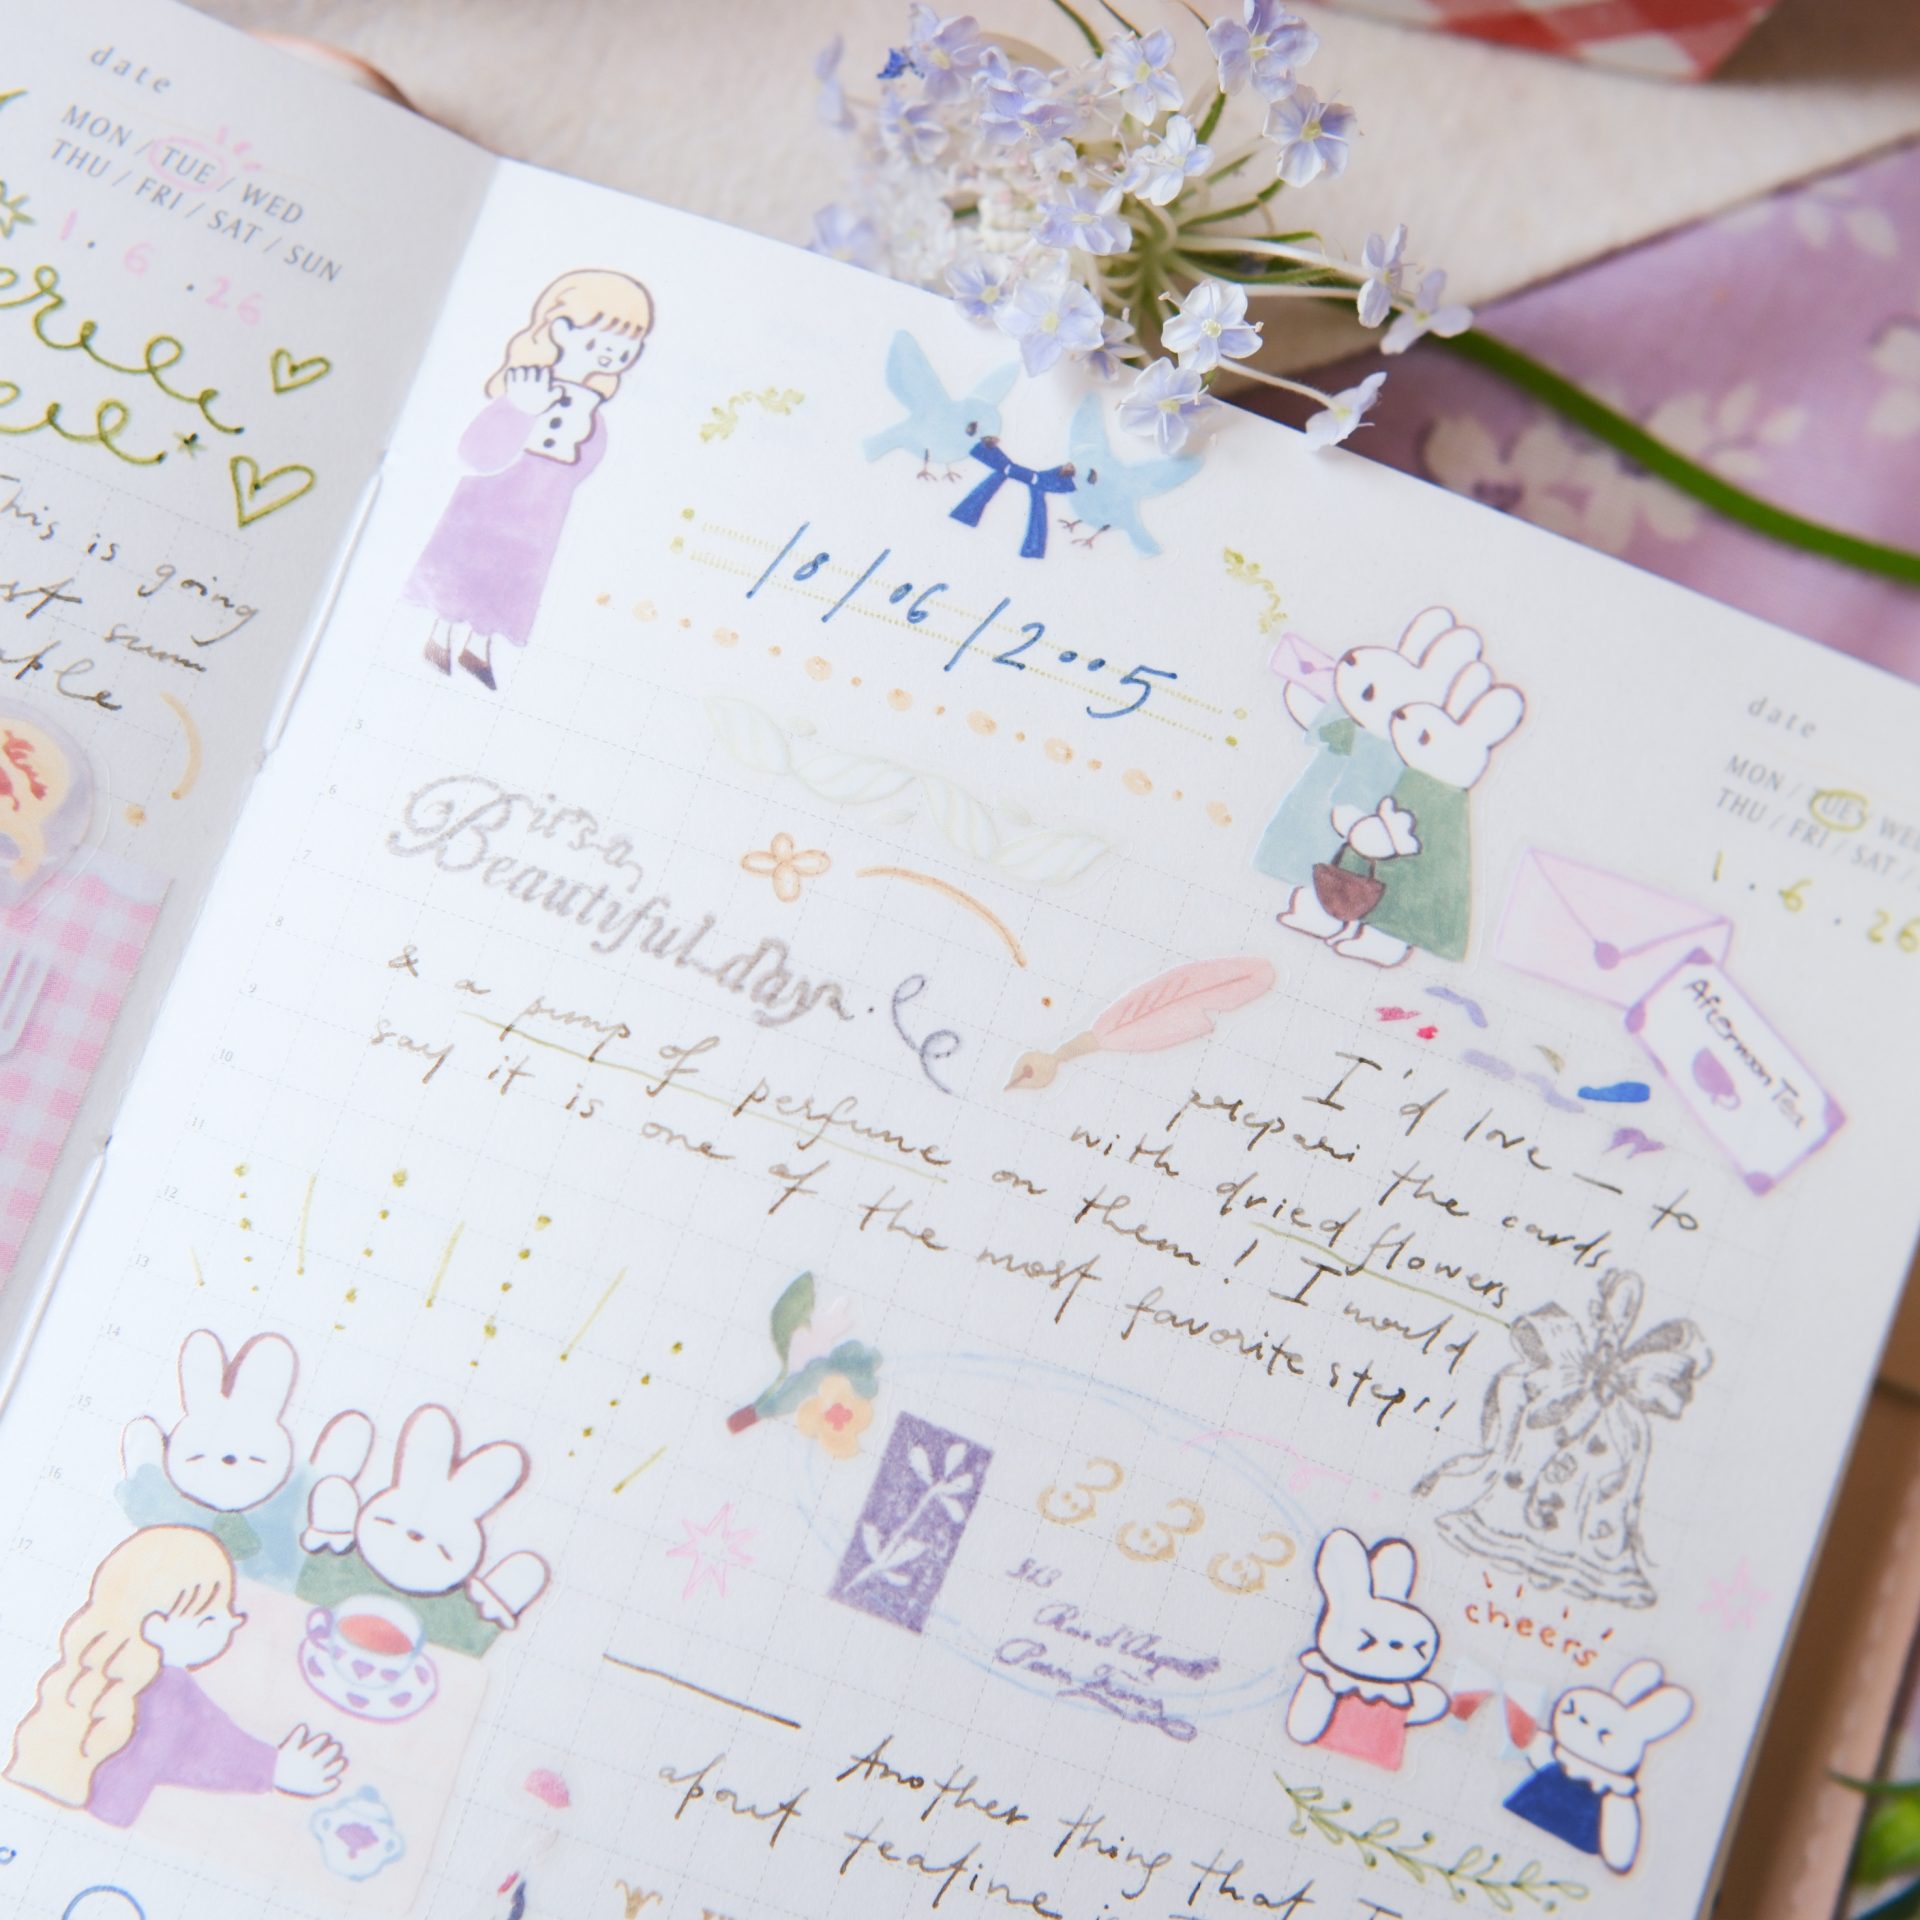 date
MON / TUE / WED
THU / FRI / SAT / SUN
1 . 6 . 26
This is going
10/06/2005
date
MON / TUE / WE
THU / FRI / SAT /
1 . 6 . 26
it's a
Beautiful day
Afternoon Tea
I'd love — to
prepare the cards
with dried flowers
& a pump of perfume on them! I would
say it is one of the most favorite step!!
3
6
7
8
9
10
11
12
13
14
15
16
17
513
cheers
Another thing that I
about teatime